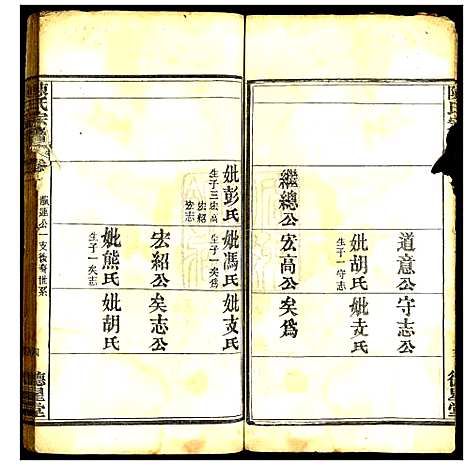 道意公 守志公
妣胡氏 生子一守志 妣支氏
繼總公 宏高公 矣為
妣彭氏 生子三宏高 宏紹 宏志 妣馮氏 生子一矣為 妣支氏
宏紹公 矣志公
妣熊氏 生子一矣志 妣胡氏
陳氏宗譜 卷
公一支後裔世系
德星堂